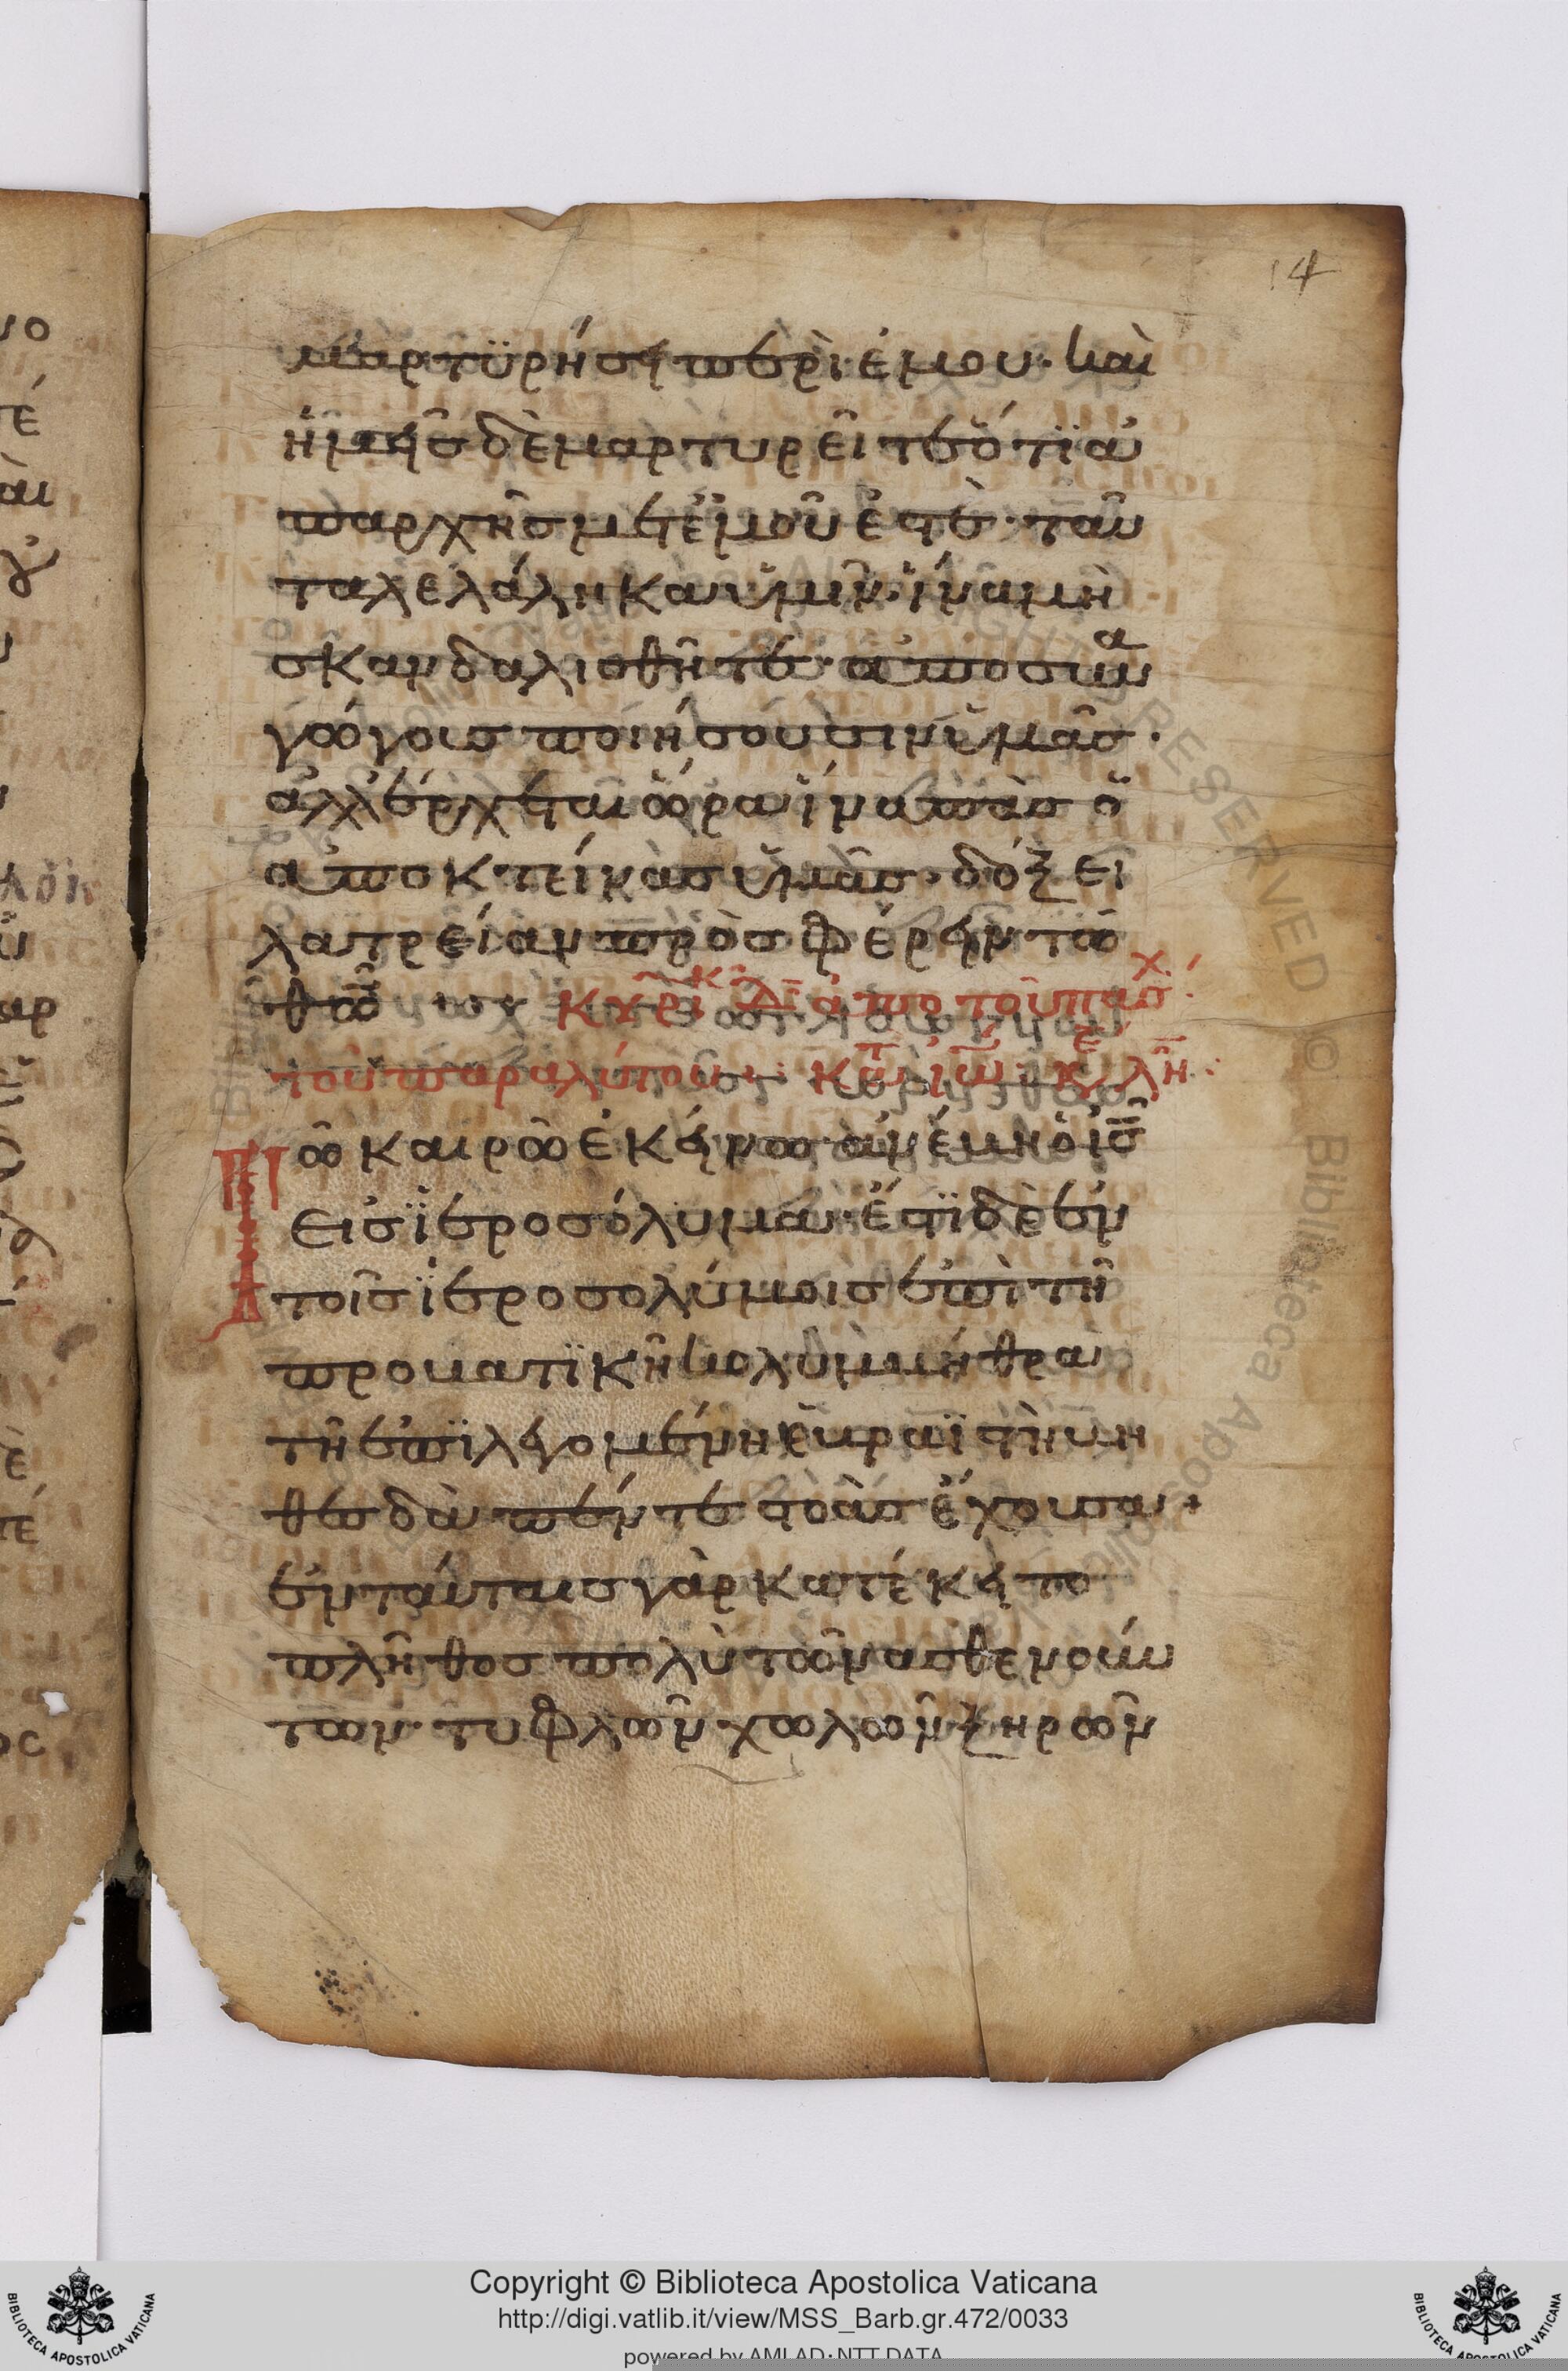 14
μαρτϋρήσει περὶ ἐμου· καὶ
ἡμεῖσ δὲ μαρτυρεῖτε ὅτϊ ἀ
παρχῆσ μετἐμοῦ ἐστὲ· ταῦ
τα λελάληκα ὑμῖν· ἵνα μὴ
σκανδαλισθῆτε· ἀποσυνα
γώγουσ ποιήσουσιν ὑμᾶσ·
ἀλλ' ἔρχεται ὥρα ἵνα πᾶσ ὁ
αποκτείνασ ὑμᾶσ· δόξει
λατρείαν προσφέρειν τῶ
θῶ κυρι κ δ ἀπο τοῦ πασχ
τοῦ παραλύτου· κατ ιω κε λη
Τῶ καιρῶ ἐκείνω ἀνέβη ὁ ισ
εισ ϊεροσόλυμα· ἔστϊ δὲ ἐν
τοῖσ ϊεροσολύμοισ ἐπὶ τῆ
προβατϊκῆ κολυμβήθρα
τῆ ἐπϊλεγομένη ἑβραϊστὶ βη
θεσδὰ πέντε στοὰσ ἔχουσα·
ἐν ταύταισ γὰρ κατέκειτο
πλῆθοσ πολὺ τῶν ασθενούν
των· τυφλῶν χωλῶν ξηρῶν
Copyright © Biblioteca Apostolica Vaticana
http://digi.vatlib.it/view/MSS_Barb.gr.472/0033
powered by AMLAD·NTT DATA